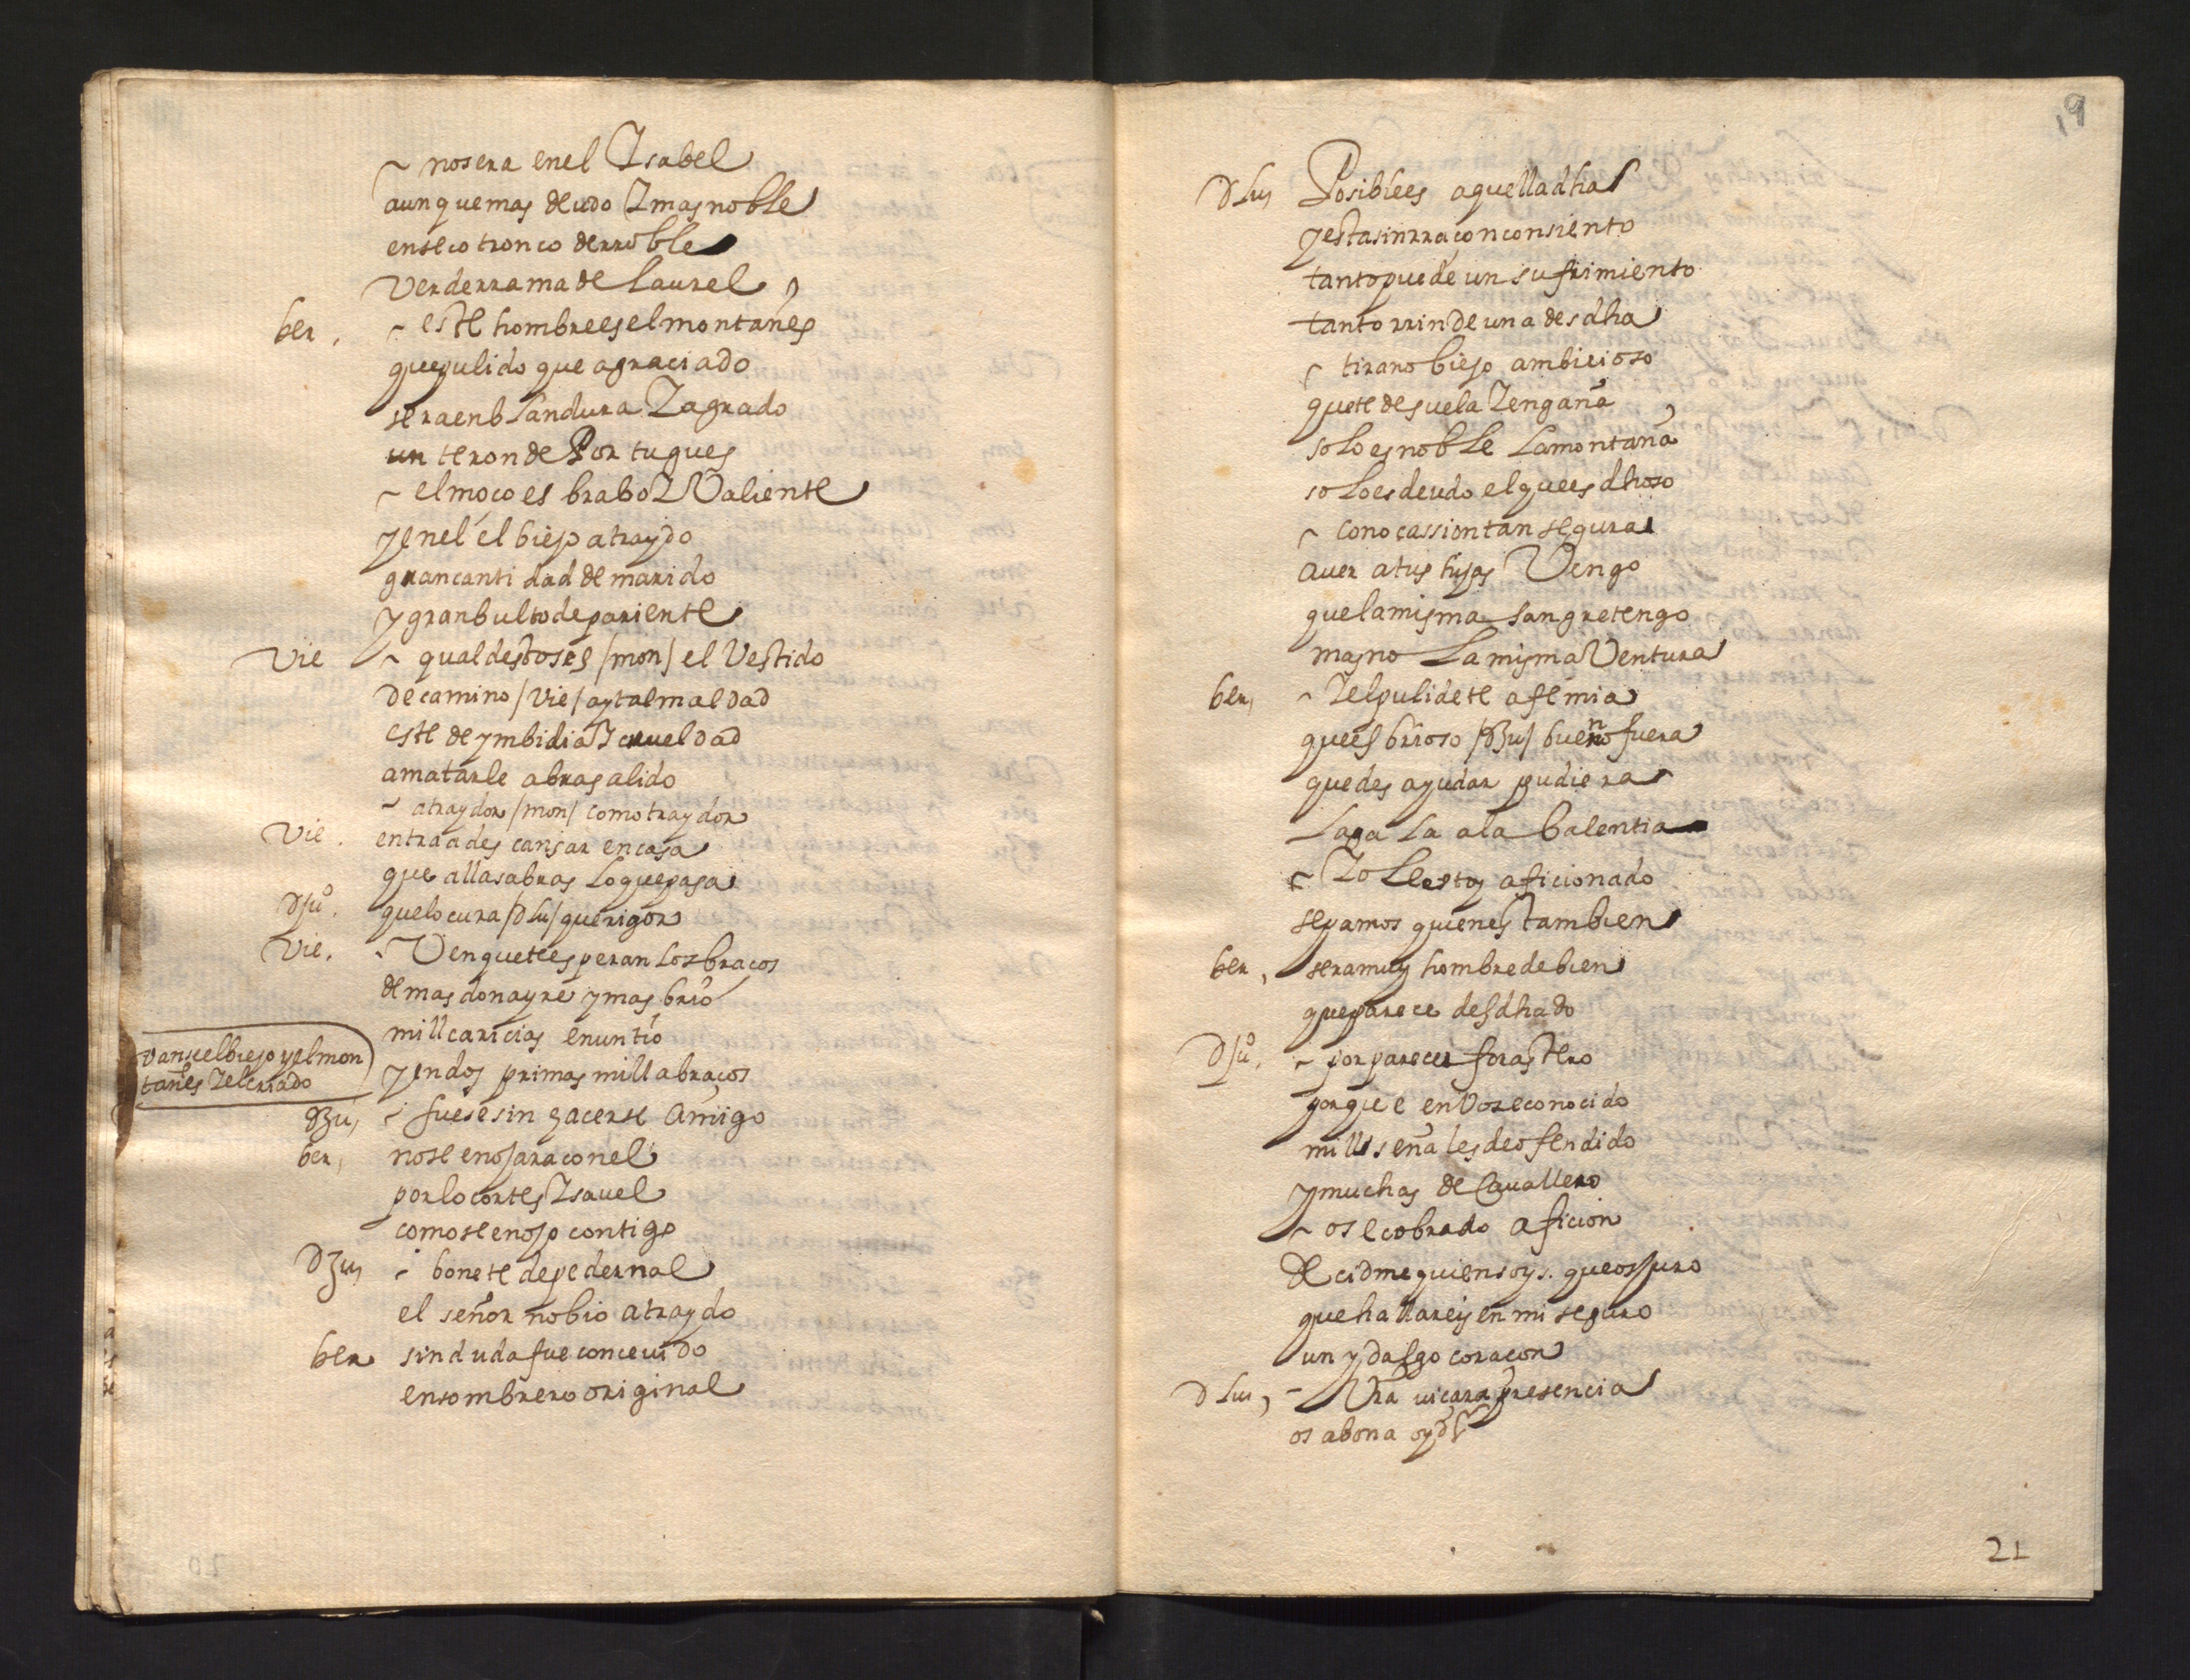 ~ no sera en el Isabel
aunque mas deudo I mas noble
en seco tronco de rroble
Verde rrama de laurel ,
ber, ~ este hombre es el montañes
que pulido que agraciado
sera en blandura I agrado
un teron de Portugues
~ el moço es brabo I Valiente
y en el el biejo a traydo
gran cantidad de marido
y gran bulto de pariente
Vie ~ qual destos es /mon/ el Vestido
de camino /Vie/ ay tal maldad
este de ymbidia I crueldad
a matarle abra salido
~ a traydor /mon/ como traydor
Vie. entra a descansar en casa
que alla sabras lo que pasa
D Juº. que locura /D Lu/ que rigor
Vie. ~ Ven que te esperan los braços
de mas donayre y mas brio
mill caricias en un tio
y en dos primas mill abraços
Vanse el biejo y el mon
tañes I el criado
D Ju, ~ fuese sin hacerse Amigo
ber, no se enojara con el
por lo cortes Isauel
como se enojo contigo
D Ju, ~ bonete de pedernal
el señor nobio a traydo
ber sin duda fue conceuido
en sombrero original
19
D Lu, Posible es aquella dha
y esta sin rraçon consiento
tanto puede un sufrimiento
tanto rrinde una desdha
~ tirano biejo ambicioso
que te desuela I engaña
solo es noble la montaña
solo es deudo el que es dhoso
~ con ocassion tan segura
a uer a tus hijas Vengo
que la misma sangre tengo
mas no la misma Ventura
ber, ~ I el pulidete a fe mia
que es brioso /D Ju/ bueno fuera
n
que desayudar pudiera
la gala a la balentia
~ I o le estoy aficionado
sepamos quien es tambien
ber, sera muy hombre de bien
que parece desdhado
D Juº, ~ por parecer forastero
porque e en Vos reconocido
mill señales de ofendido
y muchas de Cauallero
~ os e cobrado aficion
decidme quien soys. que os juro
que hallareys en mi seguro
un ydalgo coraçon
D Lu, ~ Vra uiçara presencia
os abona oyd
21